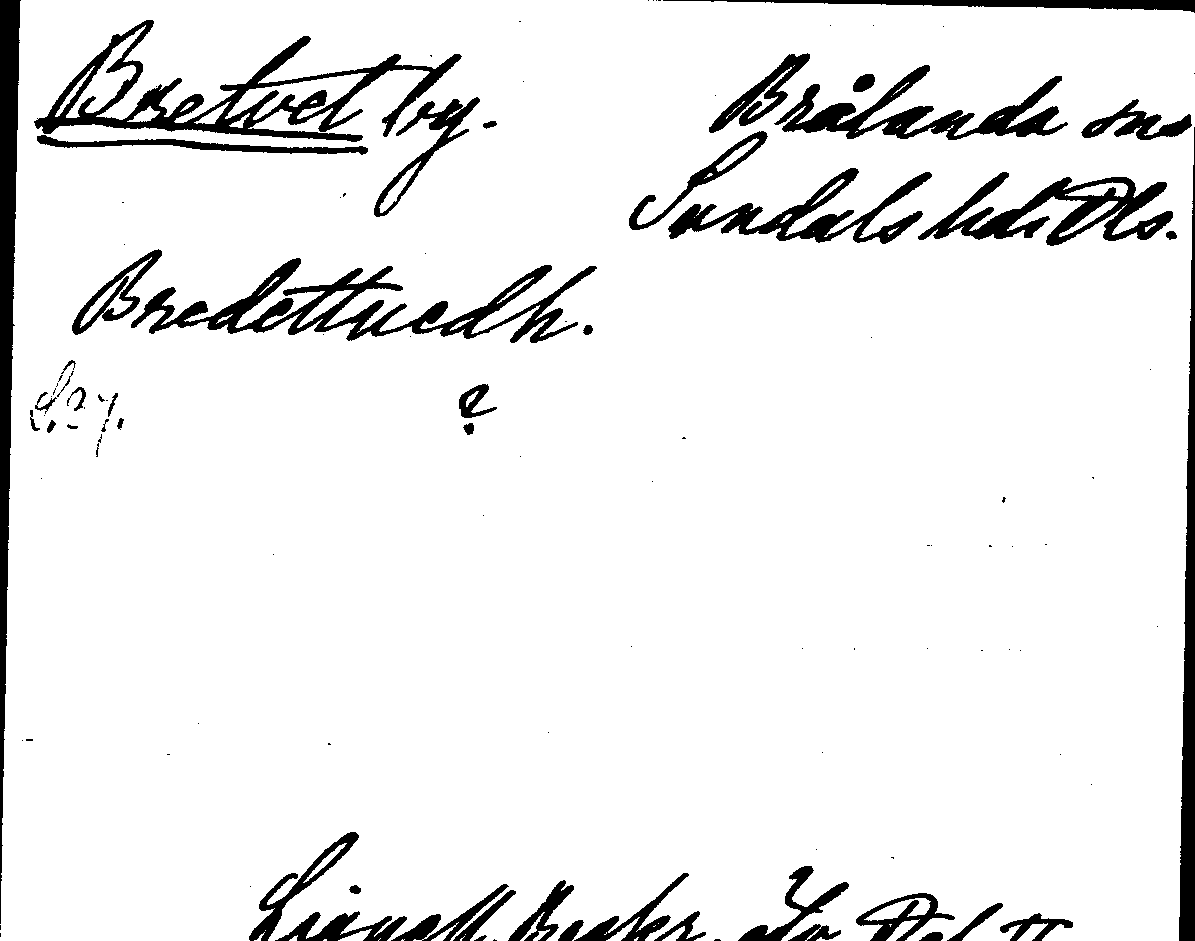 Bretvet by.
Brålanda sns
Sundals hds Dls.
Bredettuedh.
S. 27.
?
Lignell, Beskr.